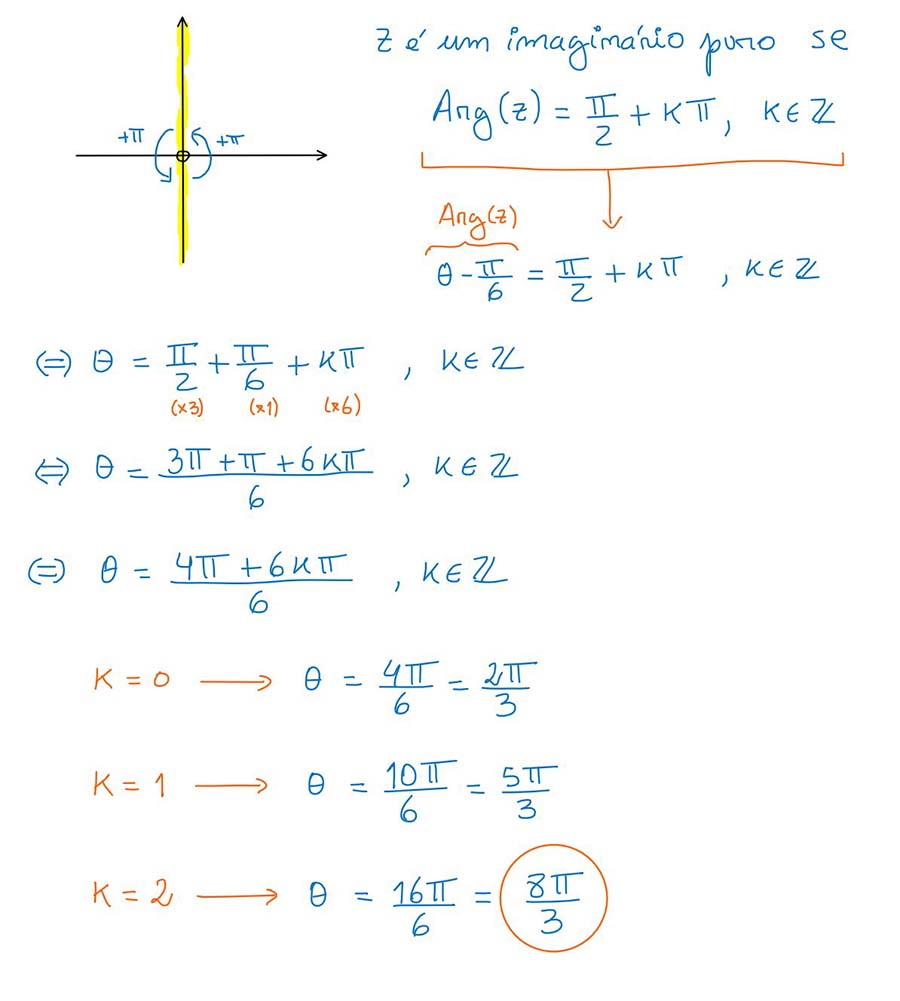 Z é um imaginário puro se
+π +π
Arg(z) = π/2 + Kπ, K∈ℤ
Arg(z)
θ - π/6 = π/2 + Kπ , K∈ℤ
(=) θ = π/2 + π/6 + Kπ , K∈ℤ
(x3) (x1) (x6)
⇔ θ = (3π + π + 6Kπ)/6 , K∈ℤ
(=) θ = (4π + 6Kπ)/6 , K∈ℤ
K = 0 ⟶ θ = 4π/6 = 2π/3
K = 1 ⟶ θ = 10π/6 = 5π/3
K = 2 ⟶ θ = 16π/6 = 8π/3